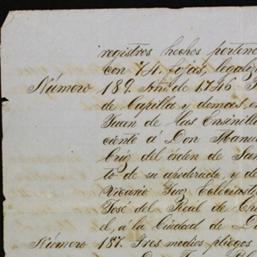 registros hechos pertene
con 74. fojas, legaliz
Número 189. Año de 1746.
de Capilla y demas, en
Juan de las Ensinilla
ciente á Don Manue
Cruz del órden de San
to de su apoderado, y de
Vicario Juez Eclesiast
José del Real de Ch
d, a la Ciudad de D
Número 187. Tres medios pliegos